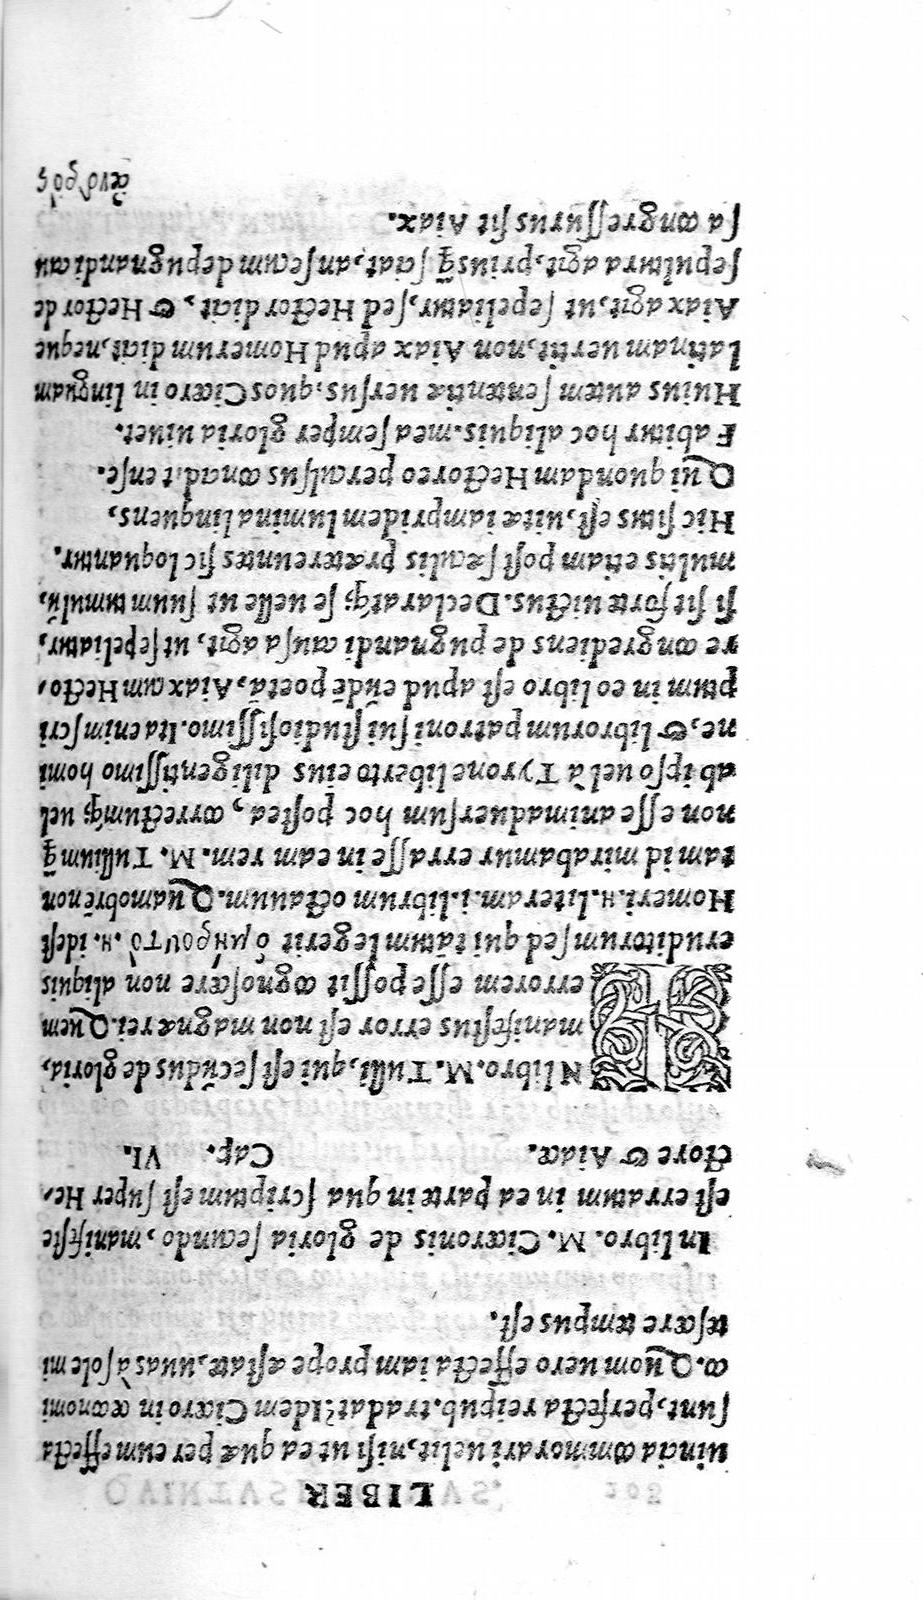 LIBER
uincia commorari uelit, nisi ut ea quæ per eum effecta
sunt, perfecta reipub. tradat? Idem Cicero in œconomi
co. Quom uero effecta iam prope æstate, uuas à sole mi
tescere tempus est.
In libro. M. Ciceronis de gloria secundo, manifeste
est erratum in ea parte in qua scriptum est super He-
ctore & Aiace. Cap. VI.
IN libro. M. Tulli, qui est secũdus de gloria,
manifestus error est non magnæ rei. Quem
errorem esse possit cognoscere non aliquis
eruditorum sed qui tãtum legerit ὁμήρου τὸ .н. idest
Homeri .н. literam .i. librum octauum. Quamobrē non
tam id mirabamur errasse in eam rem. M. Tullium q̃
non esse animaduersum hoc postea, correctumq; uel
ab ipso uel à Tyrone liberto eius diligentissimo homi
ne, & librorum patroni sui studiosissimo. Ita enim scri
ptum in eo libro est apud eūdē poetã, Aiax cum Hecto-
re congrediens de pugnandi causa agit, ut sepeliatur,
si sit forte uictus. Declaratq; se uelle ut suum tumulũ,
multis etiam post sæculis prætereuntes sic loquantur.
Hic situs est, uitæ iampridem lumina linquens,
Qui quondam Hectoreo perculsus concidit ense.
Fabitur hoc aliquis. mea semper gloria uiuet.
Huius autem sententiæ uersus, quos Cicero in linguam
Latinam uertit, non Aiax apud Homerum dicit, neque
Aiax agit, ut sepeliatur, sed Hector dicit, & Hector de
sepultura agit, prius q̃ sciat, an secum depugnandi cau
sa congressurus sit Aiax.
ἀνδρὸς